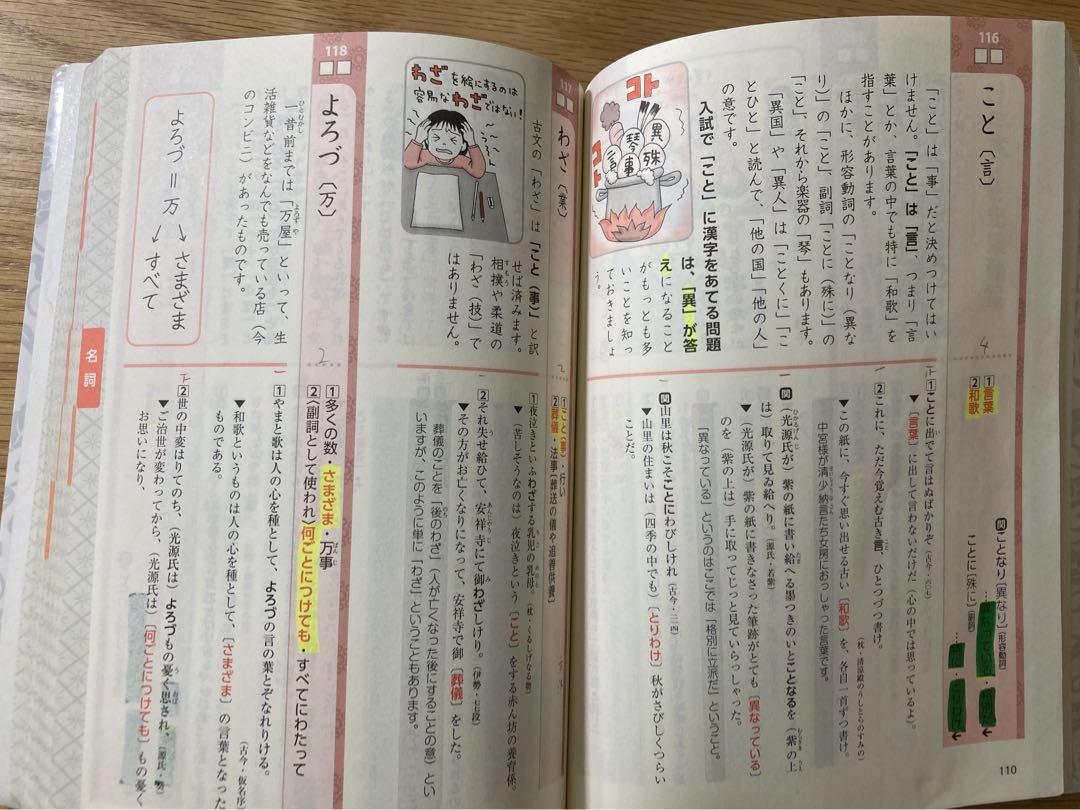 116
こと〔言〕
「こと」は「事」だと決めつけてはい
けません。「こと」は「言」、つまり「言
葉」とか、言葉の中でも特に「和歌」を
指すことがあります。
ほかに、形容動詞の「ことなり（異な
り）」の「こと」、副詞「ことに（殊に）」の
「こと」、それから楽器の「琴」もあります。
「異国」や「異人」は「ことくに」「こ
とひと」と読んで、「他の国」「他の人」
の意です。
入試で「こと」に漢字をあてる問題
は、「異」が答
えになること
がもっとも多
いことを知っ
ておきましょ
う。
コト
コト
異
殊
琴
事
言
4
①言葉
②和歌
関 ことなり［異なり］（形容動詞）
ことに［殊に］（副詞）
①ことに出でて言はぬばかりぞ（古今・六〇七）
▼［言葉］に出して言わないだけだ（心の中では思っているよ）。
②これに、ただ今覚えむ古き言、ひとつづつ書け。
（枕・清涼殿のうしとらのすみの）
▼この紙に、今すぐ思い出せる古い［和歌］を、各自一首ずつ書け。
中宮様が清少納言たち女房におっしゃった言葉です。
関（光源氏が）紫の紙に書い給へる墨つきのいとことなるを（紫の上
は）取りて見ゐ給へり。（源氏・若紫）
▼（光源氏が）紫の紙に書きなさった筆跡がとても［異なっている］
のを（紫の上は）手に取ってじっと見ていらっしゃった。
「異なっている」というのはここでは「格別に立派だ」ということ。
関 山里は秋こそことにわびしけれ（古今・二一四）
▼山里の住まいは（四季の中でも）［とりわけ］秋がさびしくつらい
ことだ。
110
117
わざ〔業〕
古文の「わざ」は「こと（事）」と訳
せば済みます。
相撲や柔道の
「わざ（技）」で
はありません。
わざを絵にするのは
容易なわざではない！
2
①こと（事）・行い
②葬儀・法事〔葬送の儀や追善供養〕
①夜泣きといふわざする乳児の乳母。（枕・くるしげなる物）
▼（苦しそうなのは）夜泣きという［こと］をする赤ん坊の養育係。
②それ失せ給ひて、安祥寺にて御わざしけり。（伊勢・七七段）
▼その方がお亡くなりになって、安祥寺で御［葬儀］をした。
葬儀のことを「後のわざ」（人が亡くなった後にすることの意）とい
いますが、このように単に「わざ」ということもあります。
118
よろづ〔万〕
一昔前までは「万屋」といって、生
活雑貨などをなんでも売っている店（今
のコンビニ）があったものです。
よろづ＝万→さまざま
→すべて
2
①多くの数・さまざま・万事
②〈副詞として使われ〉何ごとにつけても・すべてにわたって
①やまと歌は人の心を種として、よろづの言の葉とぞなれりける。
（古今・仮名序）
▼和歌というものは人の心を種として、［さまざま］の言葉となった
ものである。
②世の中変はりてのち、（光源氏は）よろづもの憂く思され、（源氏・葵）
▼ご治世が変わってから、（光源氏は）［何ごとにつけても］もの憂く
お思いになり、
名詞